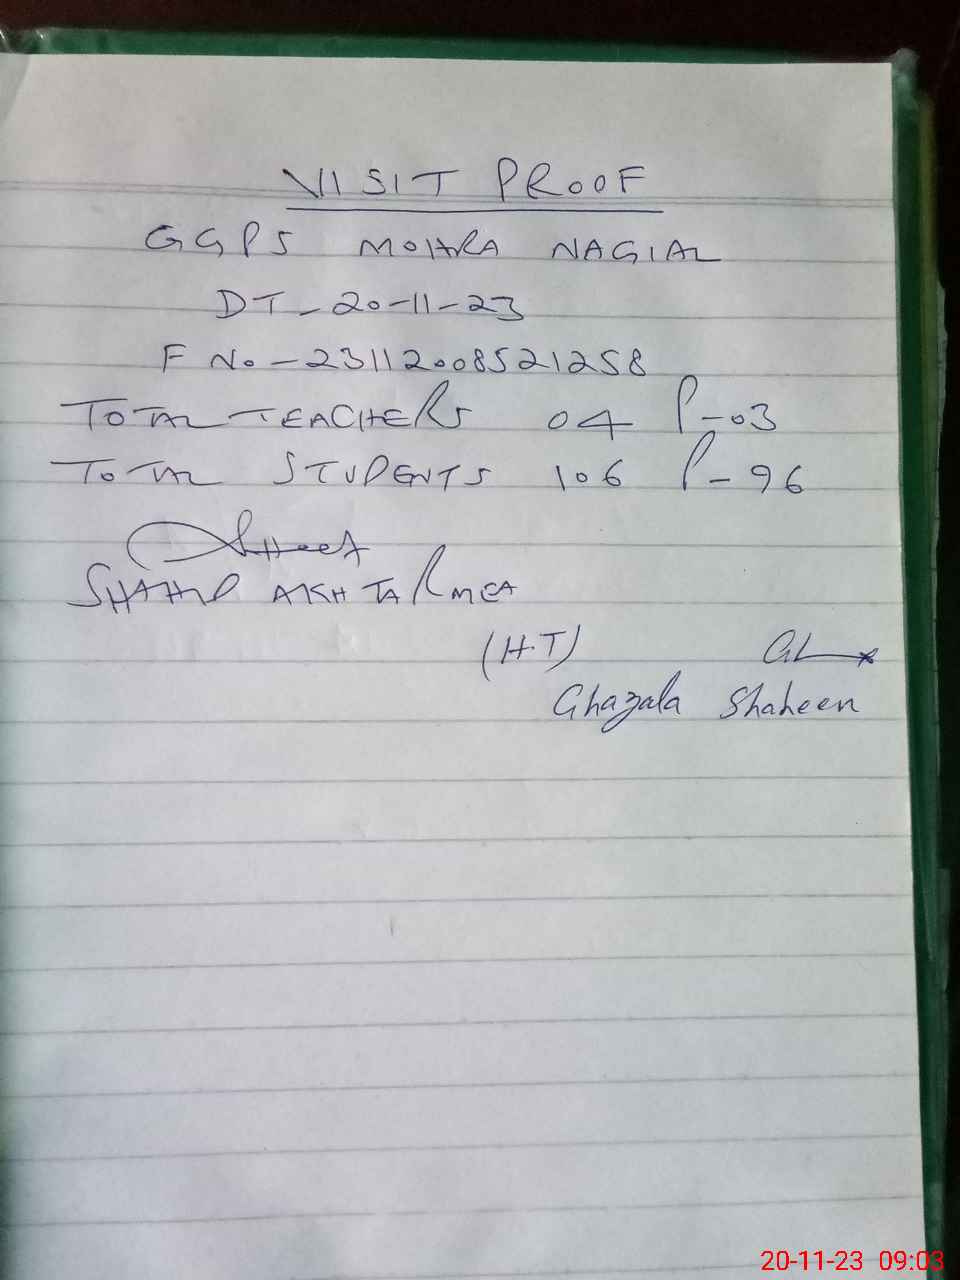 VISIT PROOF
GGPS MOHRA NAGIAL
DT - 20-11-23
F No - 23112008521258
TOTAL TEACHERS 04 P-03
TOTAL STUDENTS 106 P-96
SHAHID AKHTAR MEA
(H.T)
Ghazala Shaheen
20-11-23 09:03